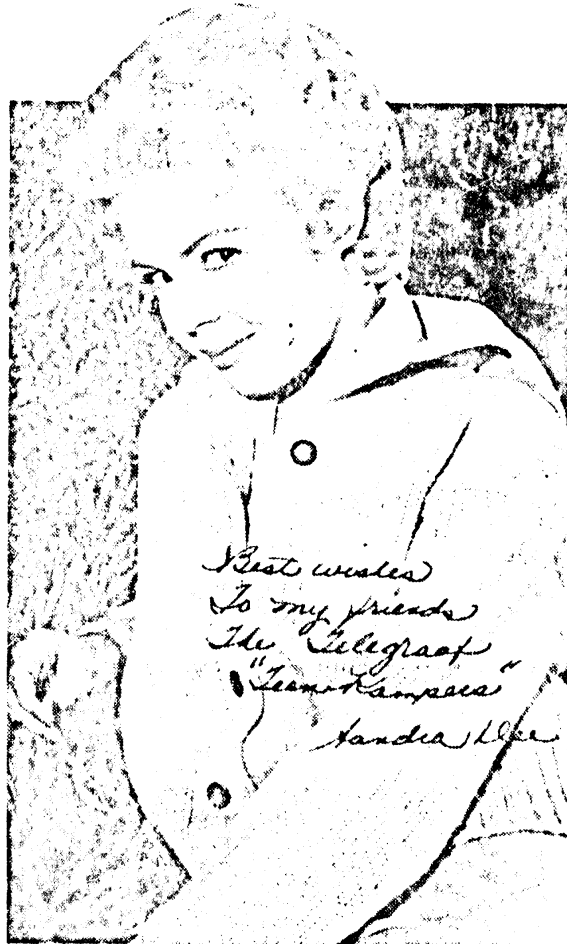 Best wishes
To my friends
The Telegraaf
"Teen-Kampers"
Sandra Dee